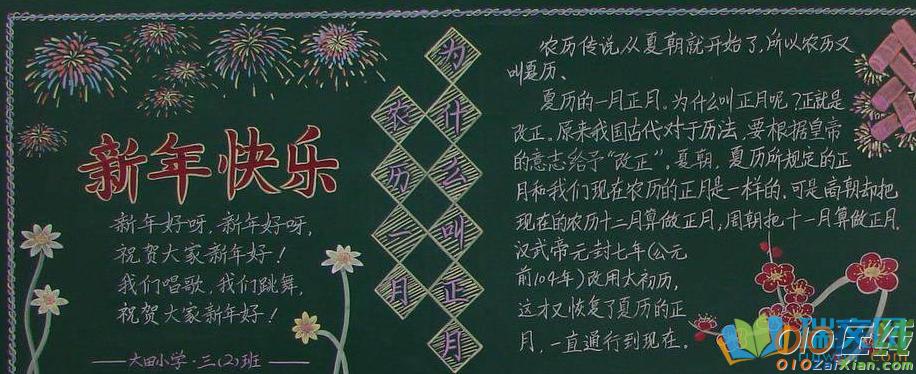 新年快乐
新年好呀,新年好呀,
祝贺大家新年好!
我们唱歌,我们跳舞,
祝贺大家新年好!
大田小学·三(2)班
农历一月
为什么叫正月
农历传说从夏朝就开始了,所以农历又
叫夏历、
夏历的一月正月。为什么叫正月呢?正就是
改正。原来我国古代对于历法,要根据皇帝
的意志给予“改正”。夏朝,夏历所规定的正
月和我们现在农历的正月是一样的.可是商朝却把
现在的农历十二月算做正月,周朝把十一月算做正月.
汉武帝元封七年(公元
前104年)改用太初历,
这才又恢复了夏历的正
月,一直通行到现在.
010在线
010zaixian.com